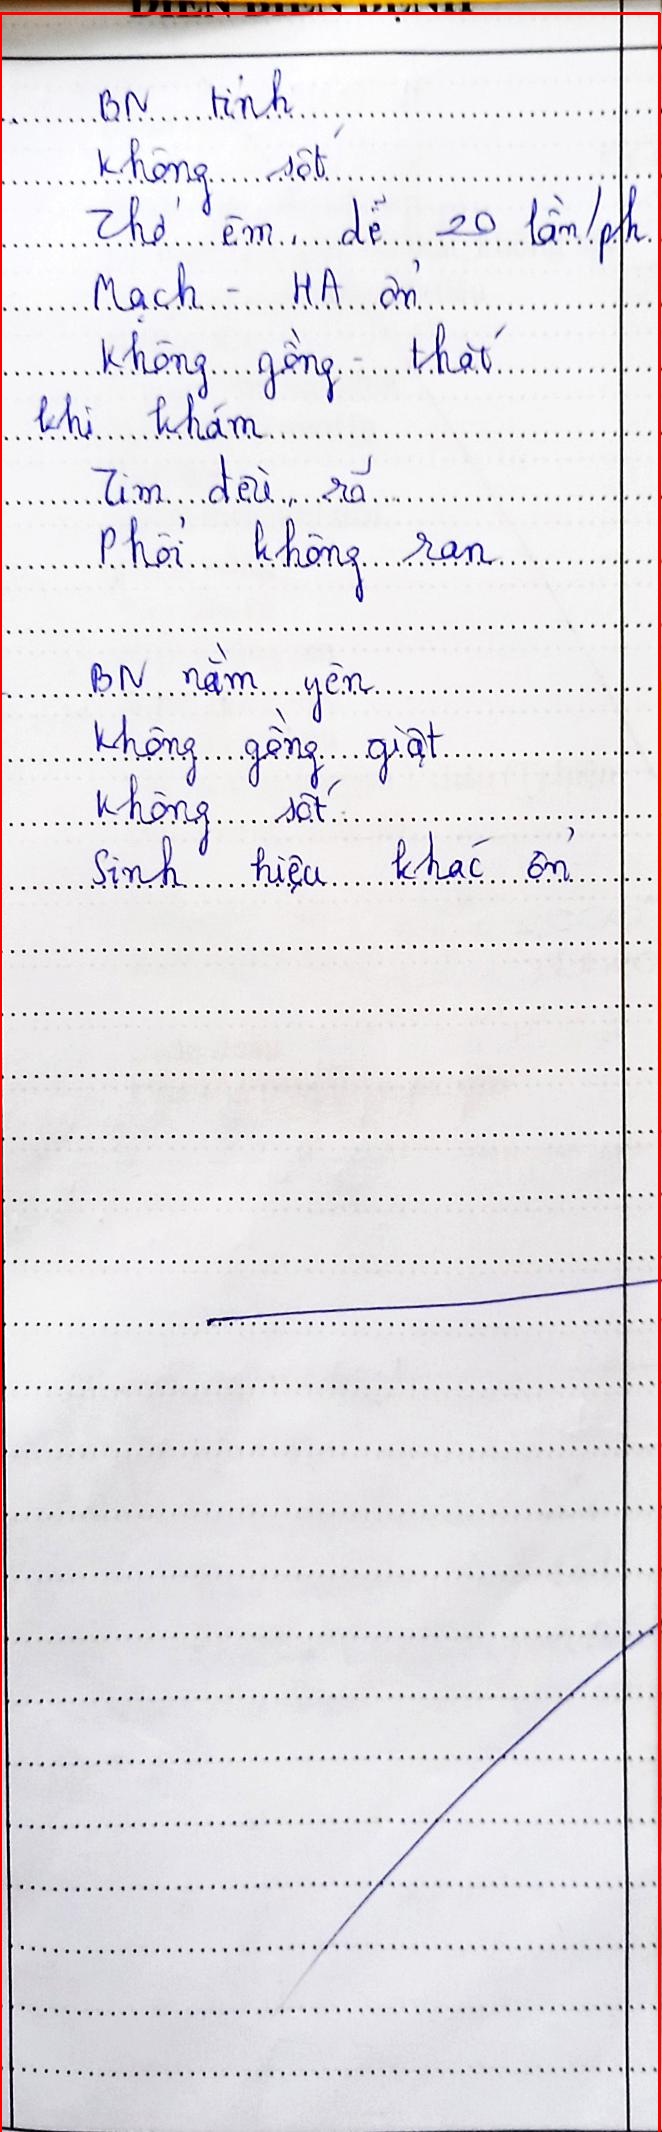 DIỄN BIẾN BỆNH
BN tỉnh
Không sốt
Thở êm, dễ 20 lần/ph
Mạch - HA ổn
Không gồng - thắt
khi khám
Tim đều, rõ
Phổi không ran
BN nằm yên
Không gồng giật
Không sốt
Sinh hiệu khác ổn